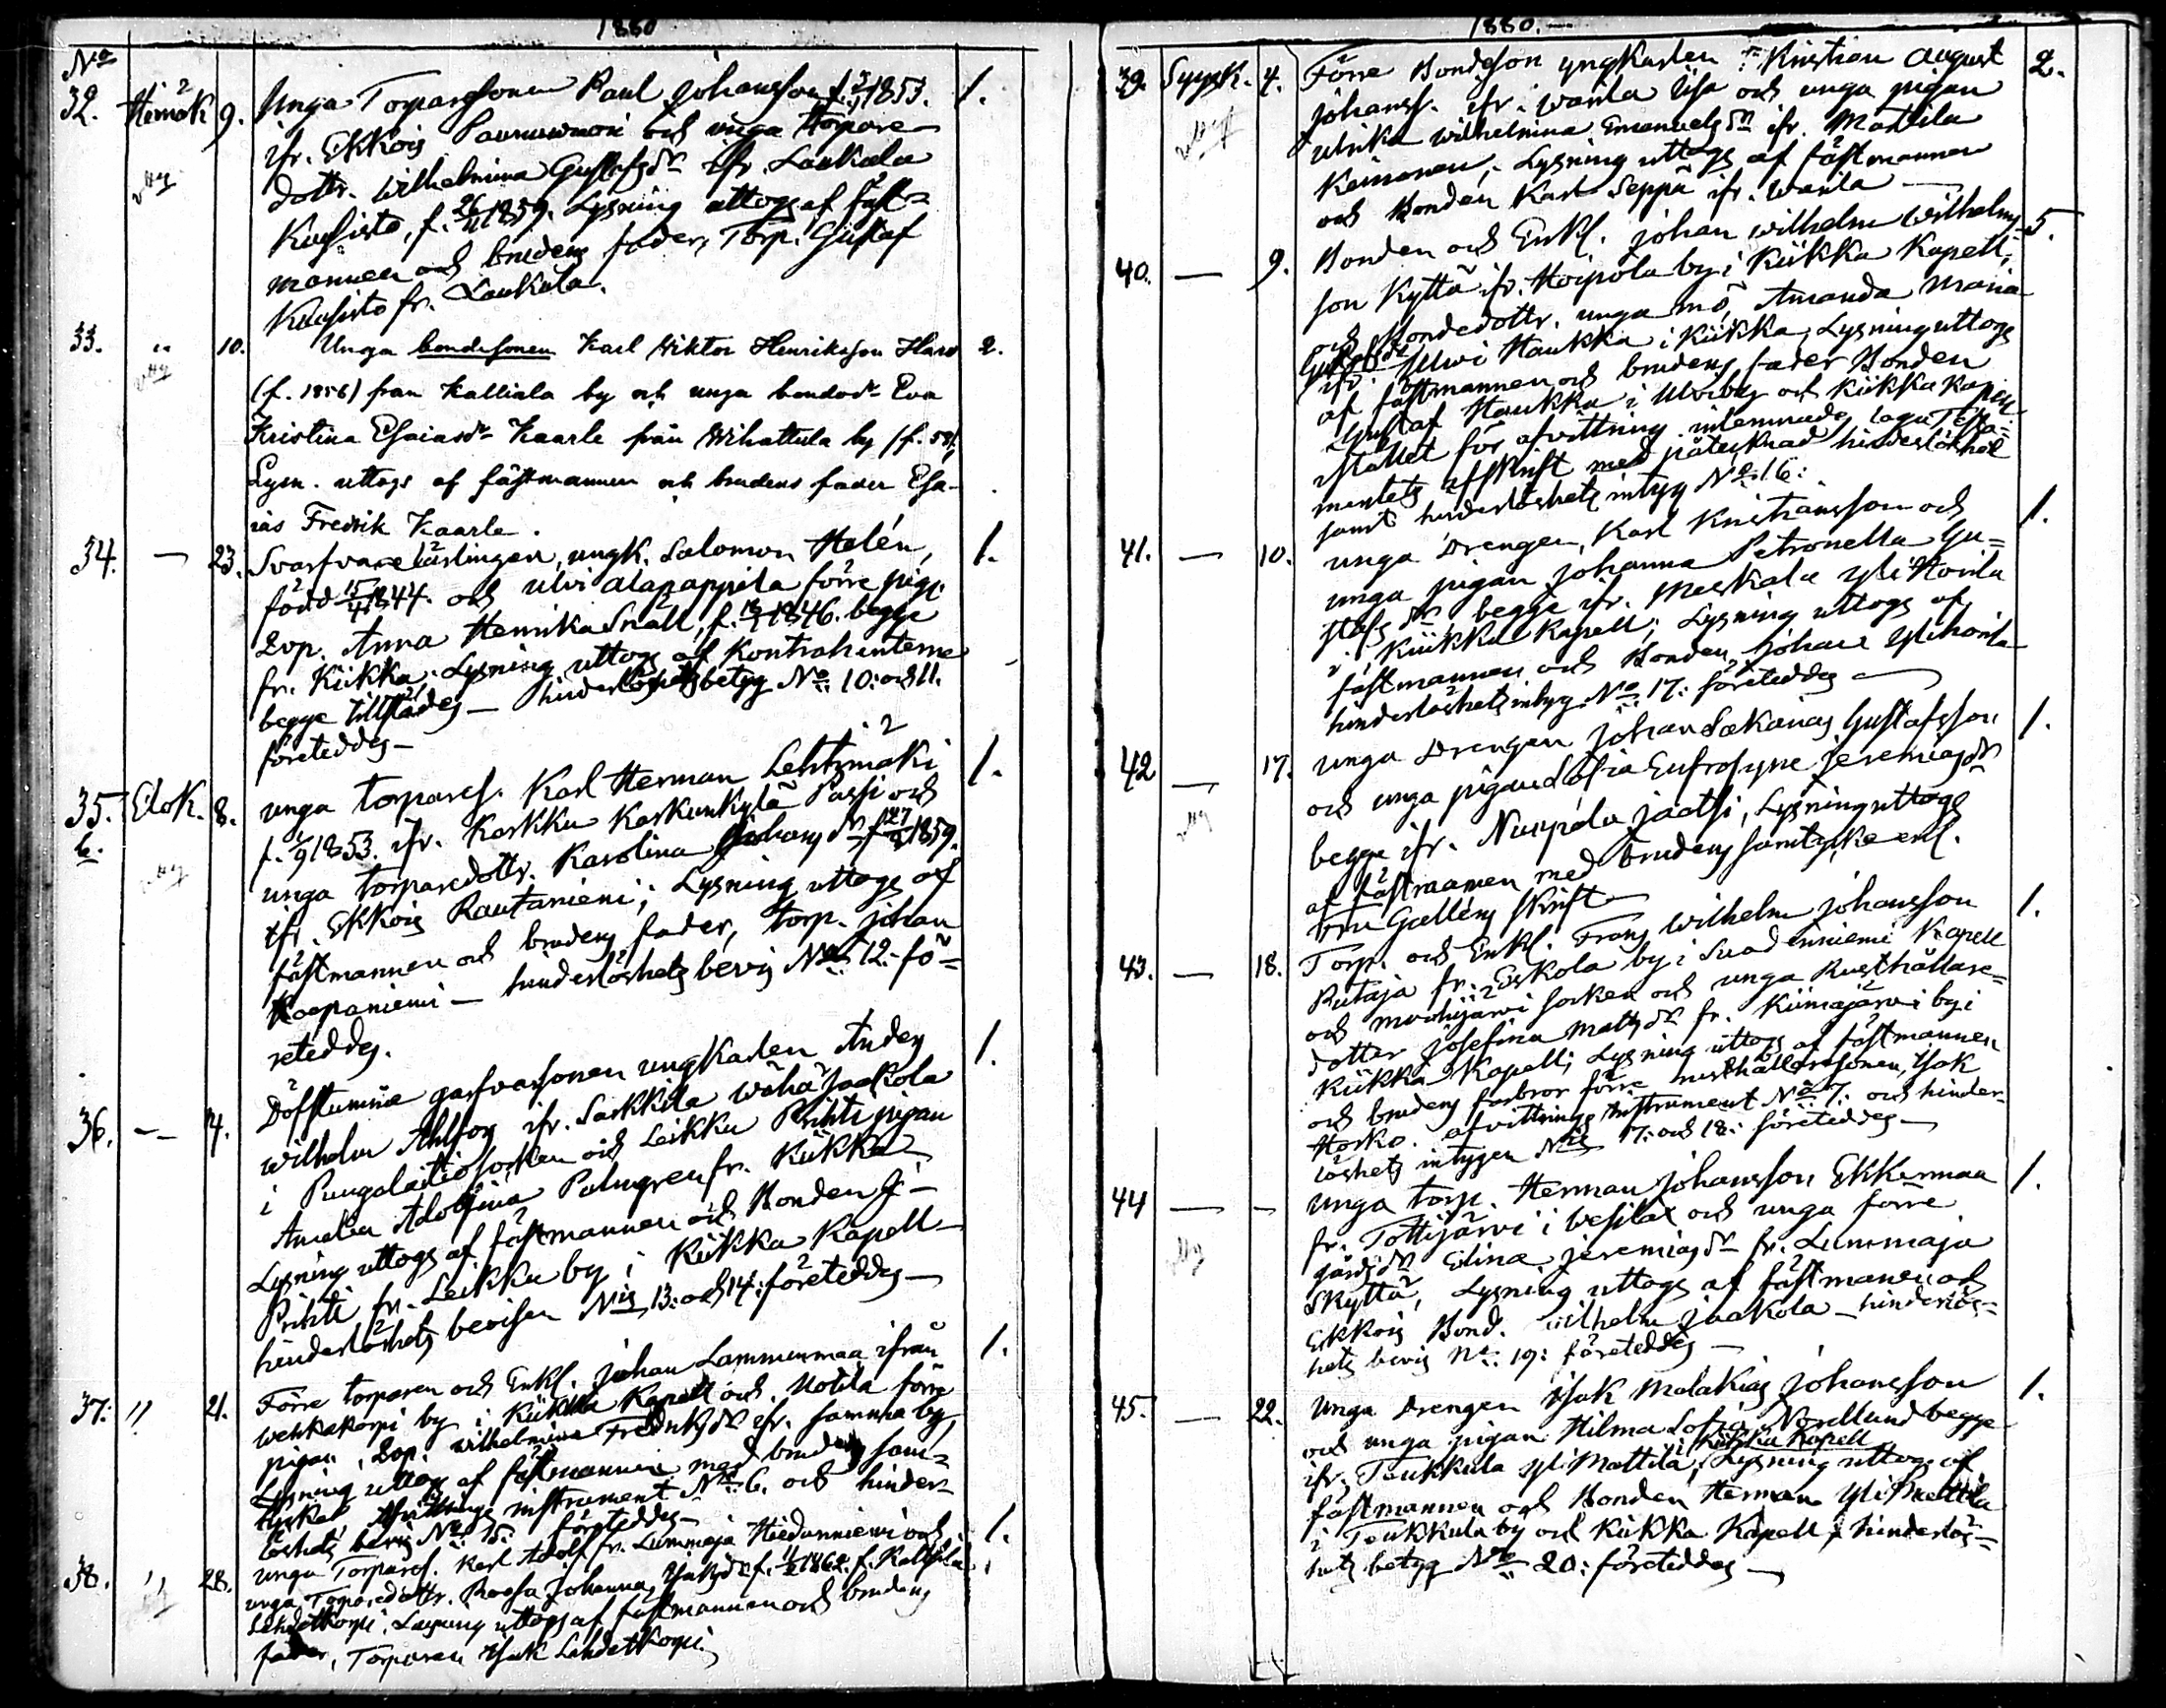 1880
No
32. Heinäk 9. Unga Torparesonen Paul Johansson f. 1853. 1.
ifr. Ekkois och unga Torpare-
dottr. Wilhelmina Gustafsdr ifr. Laukula
Kuusisto, f. 26/11 1859. Lysning uttogs af fäst-
mannen och brudens fader, Torp. Gustaf
Kuusisto fr. Laukula.
33. " 10. Unga bondesonen Karl Wiktor Henriksson Haro 2.
(f. 1856) från Kalliala by och unga bondedr Eva
Kristina Esaiasdr Kaarle från Wihattula by (f. 58),
Lysn. uttogs af fästmannen och brudens fader Esa-
ias Fredrik Kaarle.
34. — 23. Svarfvarelärlingen, ungk. Salomon Helén, 1.
född 15/4 1844. och Ulvi Alapappila förre pig.
Lop. Anna Henrika Snäll, f. 1846. begge
fr. Kiikka. Lysning uttogs af Kontrahenterne
begge tillstädes — hinderlöshetsbetyg No 10: och 11.
företeddes —
35. Elok. 8. unga torpares. Karl Herman Lehtzmäki 1.
b. f. 1/9 1853. ifr. Karkku Karkunkylä Passi och
unga torparedottr. Karolina Johansdr f. 27/9 1859.
ifr. Ekkois Rautaniemi; Lysning uttogs af
fästmannen och brudens fader, torp. Johan
Koopaniemi — hinderlöshets bevis No 12: fö-
reteddes.
36. — 14. Döfstumma garfvarsonen ungkarlen Anders 1.
Wilhelm Ahlfors ifr. Sarkkila Wäha Jaakola
i Pungalaitio socken och Leikku Prihti pigan
Amalia Adolfina Palmgren fr. Kiikka
Lysning uttogs af fästmannen och Bonden J-
Prihti fr. Leikku by i Kiikka Kapell —
hinderlöshets bevisen Nis 13: och 14: företeddes —
37: " 21. Förre torparen och Enkl. Johan Lammenmaa ifrån 1.
Wehkakorpi by i Kiikka Kapell och Uotila förre
pigan, Lop. Wilhelmina Fredriksdr ifr. samma by,
Lysning uttogs af fästmannen med brudens sam-
tycke Afvittrings instrument No 6. och hinder-
löshets bevis No 15: företeddes —
38. " 28. unga Torpares. Karl Adolf fr. Lummaja Hiedanniemi och 1.
unga Torparedottr. Roosa Johanna Isaksdr f. 1862. f.
Lehdetkorpi. Lysning uttogs af fästmannen och brudens
fader, Torparen Isak Lehdetkorpi.
1880. —
39. Syysk. 4. Förre Bondeson ynglingen Kristian August 2.
Johanss. ifr. Warila Iisa och unga pigan
Ulrika Wilhelmina Emanuelsdr ifr. Mattila
Keinonen; Lysning uttogs af fästmannen
och Bonden Karl Seppä ifr. Warila —
40. — 9. Bonden och Enkl. Johan Wilhelm Wilhelms- 5.
son Kyttä ifr. by i Kiikka Kapell;
och Bondedottr. unga mö, Amanda Maria
Gustafsdr
ifr. Ulwi Haukka i Kiikka; Lysning uttogs
af fästmannen och brudens fader Bonden
Gustaf Haukka i Ulwi by och Kiikka Kapell
Istället för afvittring inlemnades laga Testa-
mentets afskrift med påtecknad
samt hinderlöshets intyg No 16:
41. — 10. unga Drengen, Karl Kristiansson och 1.
unga pigan Johanna Petronella Gu-
stafsdr begge ifr. Meskala Yli Hoirla
i Kiikka Kapell; Lysning uttogs af
fästmannen och Bonden Johan Ylihoirla
hinderlöshets intyg No 17: företeddes —
42 — 17. unga Drengen Johan Sakarias Gustafsson 1.
och unga pigan Sofia Eufrosyne Jeremiasdr
begge ifr. Nuupala Jaatsi, Lysning uttogs
af fästmannen med brudens samtycke enl.
fru Galléns skrift —
43. — 18. Torp. och Enkl. Frans Wilhelm Johansson 1.
Rutaja fr. Eskola by i Suodenniemi Kapell
och Mouhijärvi socken och unga Rusthållare-
dotter Josefina Mattsdr fr. Kiimajärvi by i
Kiikka Kapell; Lysning uttogs af fästmannen
och brudens farbror förre rusthållaresonen, Isak
Horko. afvittrings instrument No 7: och hinder-
löshets intygen Nis 17: och 18: företeddes —
44 — — unga torp. Herman Johansson Ekkermaa 1.
fr. Tottijärvi i Wesilax och unga förre
gårdsdr Elina Jeremiasdr fr. Lummaja
Skyttä, Lysning uttogs af fästmannen och
Ekkois Bond. Wilhelm Jaakola — hinderlös-
hets bevis No 19: företeddes —
45. — 22. Unga Drengen Isak Malakias Johansson 1.
och unga pigan Hilma Sofia Nordlund begge
i Kiikka Kapell
ifr. Teukkula Yli Mattila; Lysning uttogs af
fästmannen och Bonden Herman Yli Mattila
i Teukkula by och Kiikka Kapell, hinderlös-
hets betyg No 20: företeddes —